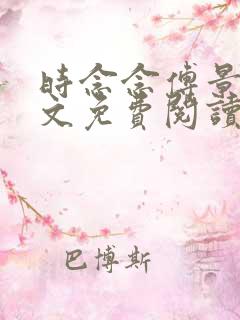 時念念傅景
文免費閱讀
巴博斯